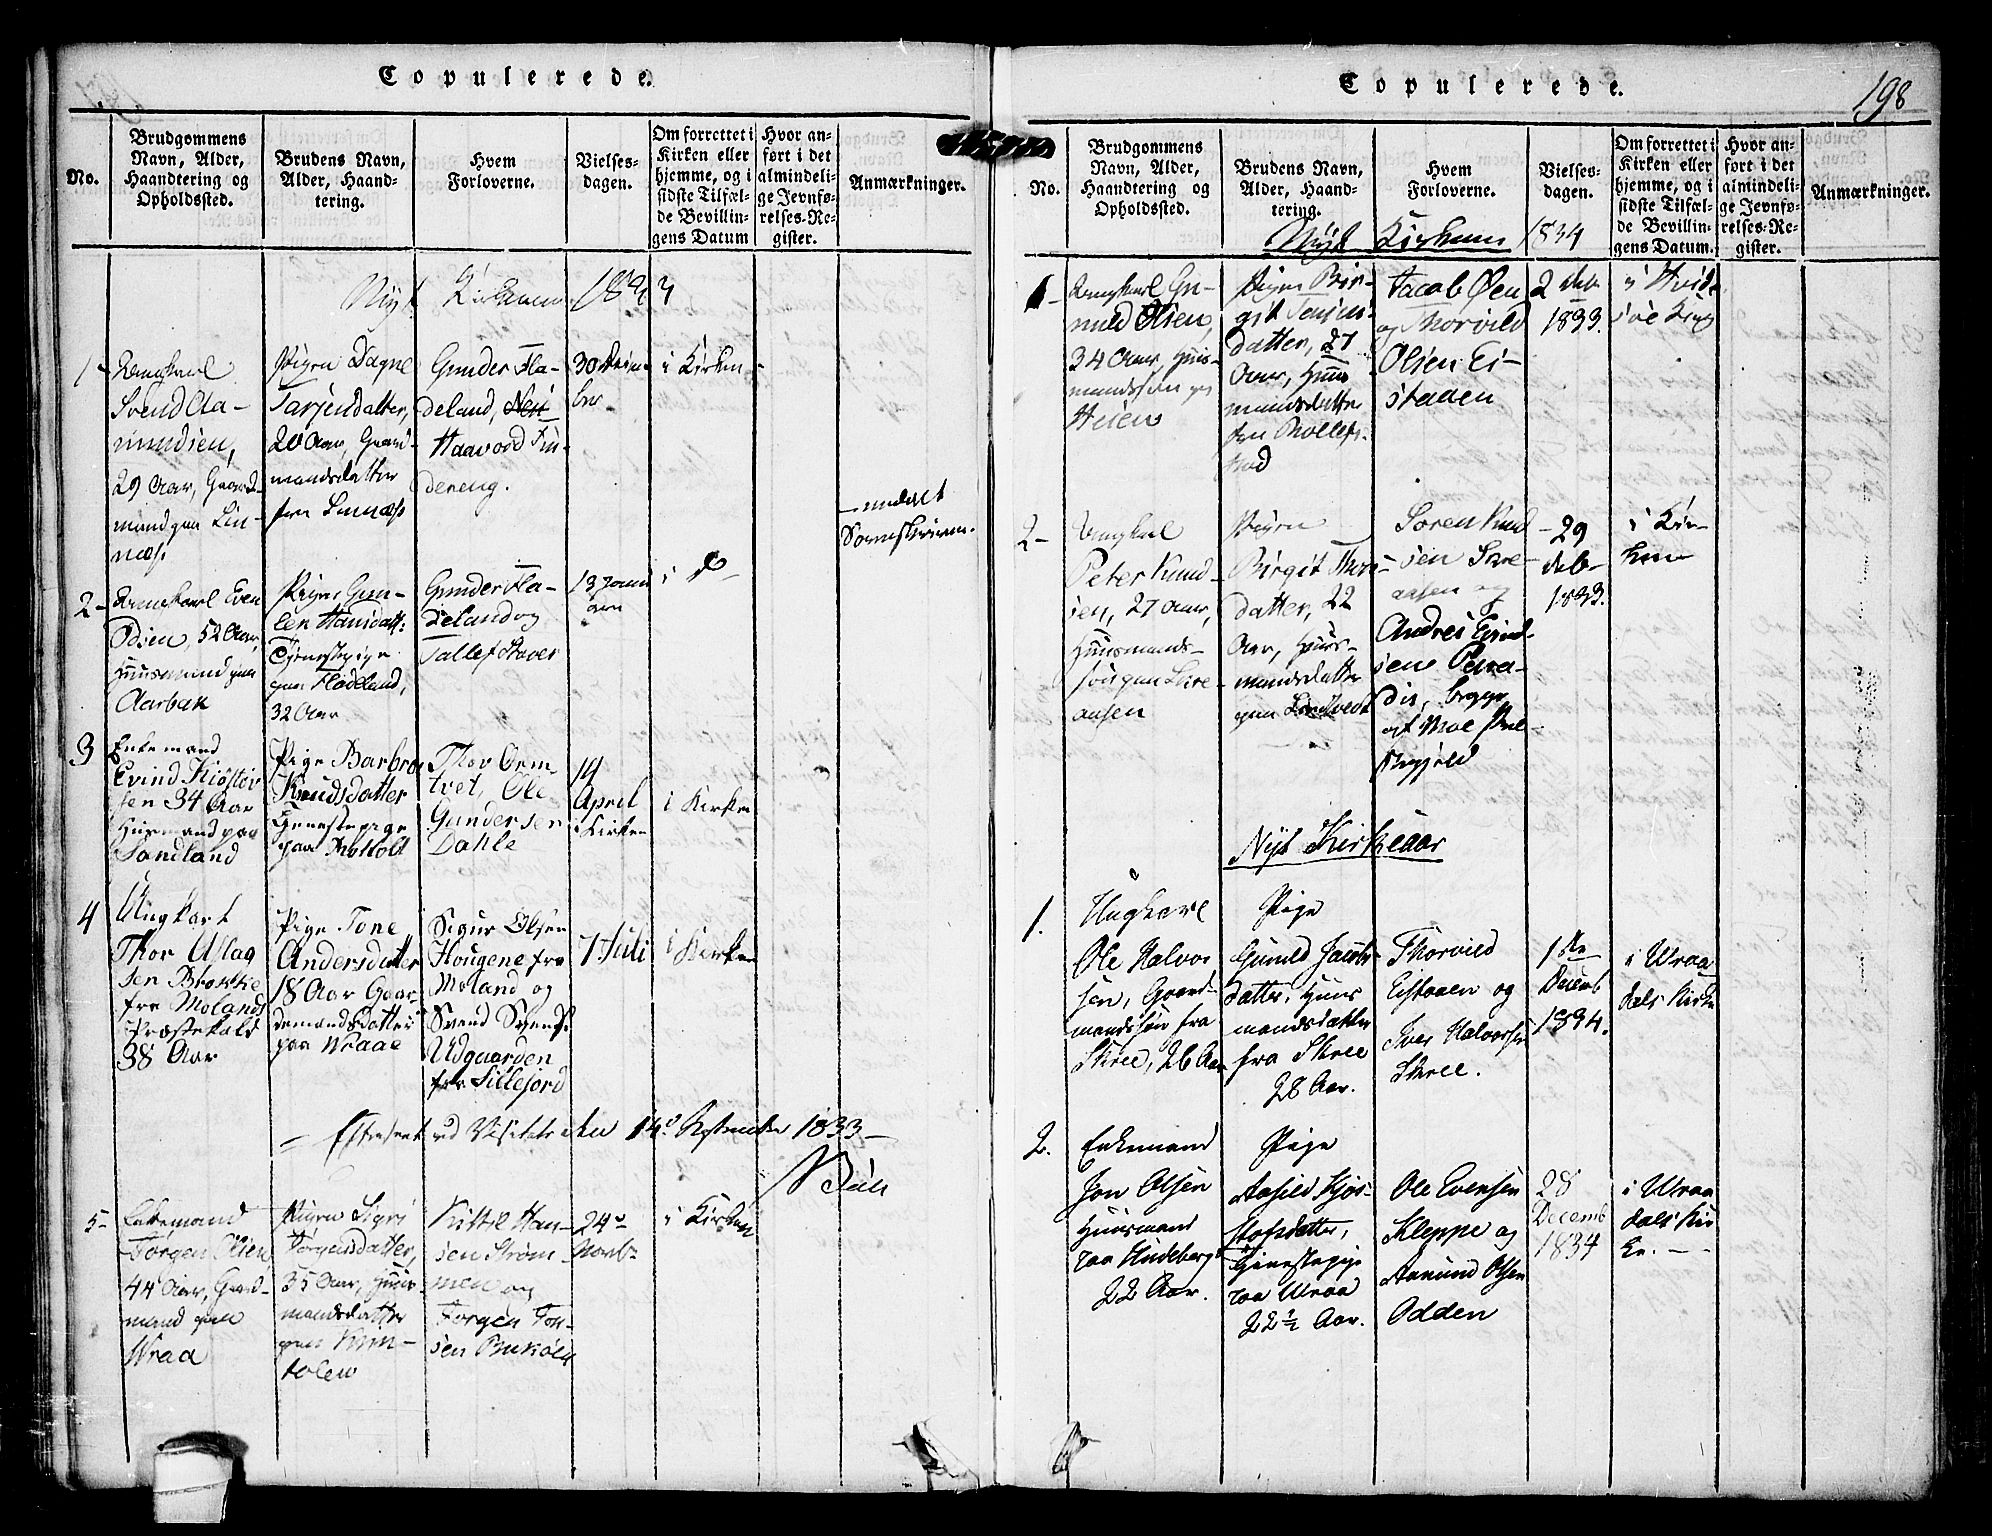 Copulerede.
No.
Brudgommens
Navn, Alder,
Haandtering og
Opholdssted.
Brudens Navn,
Alder, Haand-
tering.
Hvem
Forloverne.
Vielses-
dagen.
Om forrettet i
Kirken eller
hjemme, og i
sidste Tilfæl-
de Bevillin-
gens Datum
Hvor an-
ført i det
almindeli-
ge Jevnfø-
relses-Re-
gister.
Anmærkninger.
Nyt Kirkeaar
1-
Ungkarl
Svend Aa-
mundsen,
29 Aar, Gaard-
mand paa Lin-
næs.
Pigen Dagne
Tarjeisdatter,
20 Aar, Gaard-
mandsdatter
fra Linnæs
Gunder Fla-
deland,
Haavord Tin-
dereng.
30
i Kirken
2-
Ungkarl Even
Odsen, 52 Aar,
Huusmand paa
Aarbak
Pigen Gun-
len Hansdatt:
Tjenestepige
paa Flodeland,
32 Aar
Gunder Fla-
deland og
Tallef Staver
13 Janu
ar
i
3
Enkemand
Evind Kiøstov
sen 34 Aar
Husmand paa
Sandland
Pige Barbro
Knudsdatter
Tjenestepige
paa
Thor Orm-
tvet, Ole
Gundersen
Dahle
14
April
i Kirken
i Kirken
4
Ungkarl
Thor Aslag
sen Brokke
fra Molands
Præstekald
38 Aar
Pige Tone
Andersdatter
18 Aar Gaar-
demandsdatter
paa Wraae
Sigur Olsen
Hougene fra
Moland og
Svend Svends.
Udgaarden
fra Sillejord
7 Juli
i Kirken
Efterseet ved Visitats den 14de September 1833 -
5-
Enkemand
Jørgen Olsen
44 Aar, Gaard-
mand paa
Wraa
Pigen Sigri
Jørgensdatter,
35 Aar, Huus-
mandsdatter
paa
Kittil Han-
sen Strøm-
men og
Jørgen Jon-
sen
24de
Novbr
i Kirken
Copulerede.
198
No.
Brudgommens
Navn, Alder,
Haandtering og
Opholdssted.
Brudens Navn,
Alder, Haand-
tering.
Hvem
Forloverne.
Vielses-
dagen.
Om forrettet i
Kirken eller
hjemme, og i
sidste Tilfæl-
de Bevillin-
gens Datum.
Hvor an-
ført i det
almindeli-
ge Jevnfø-
relses-Re-
gister.
Anmærkninger.
Nyt Kirkeaar 1834
1-
Ungkarl Gu-
nuld Olsen,
34 Aar, Huus-
mandssøn paa
Heien
Pigen Bir-
git
datter, 27
Aar, Huus
mandsdatter
fra
Jacob Øen
og Thorvild
Olsen Ei-
staaen
2 Deb
1833.
i Hvide
søe Kirke
2-
Ungkarl
Peter Knud-
sen, 27 Aar,
Huusmands-
søn paa Skre-
aasen
Pigen
Birgit Thors-
datter, 22
Aar, Huus-
mandsdatter
paa
Søren Knud
sen Skre-
aasen og
Andres Evind-
sen
begge
af Moe Præ-
stegjeld
29
Deb-
1833.
i Kir-
ken
Nyt Kirkeaar
1.
Ungkarl
Ole Halvor
sen, Gaard-
mandssøn fra
Skree, 26 Aar
Pige
Gunild Jacobs-
datter, Huus
mandsdatter
fra Skree
28 Aar.
Thorvild
Eistaaen og
Iver Halvorsen
Skree.
1ste
Decemb
1834.
i Wraa
dals Kirke
2.
Enkemand
Jon Olsen
Huusmand
paa Hudeberg
22 Aar.
Pige
Aasild Kjøs-
stofsdatter,
Tjenestepige
paa Wraa
22 ½ Aar.
Ole Evensen
Kleppe og
Aamund Olsen
Odden
28
Decemb
1834
i Wraa
dals Kir
ke.